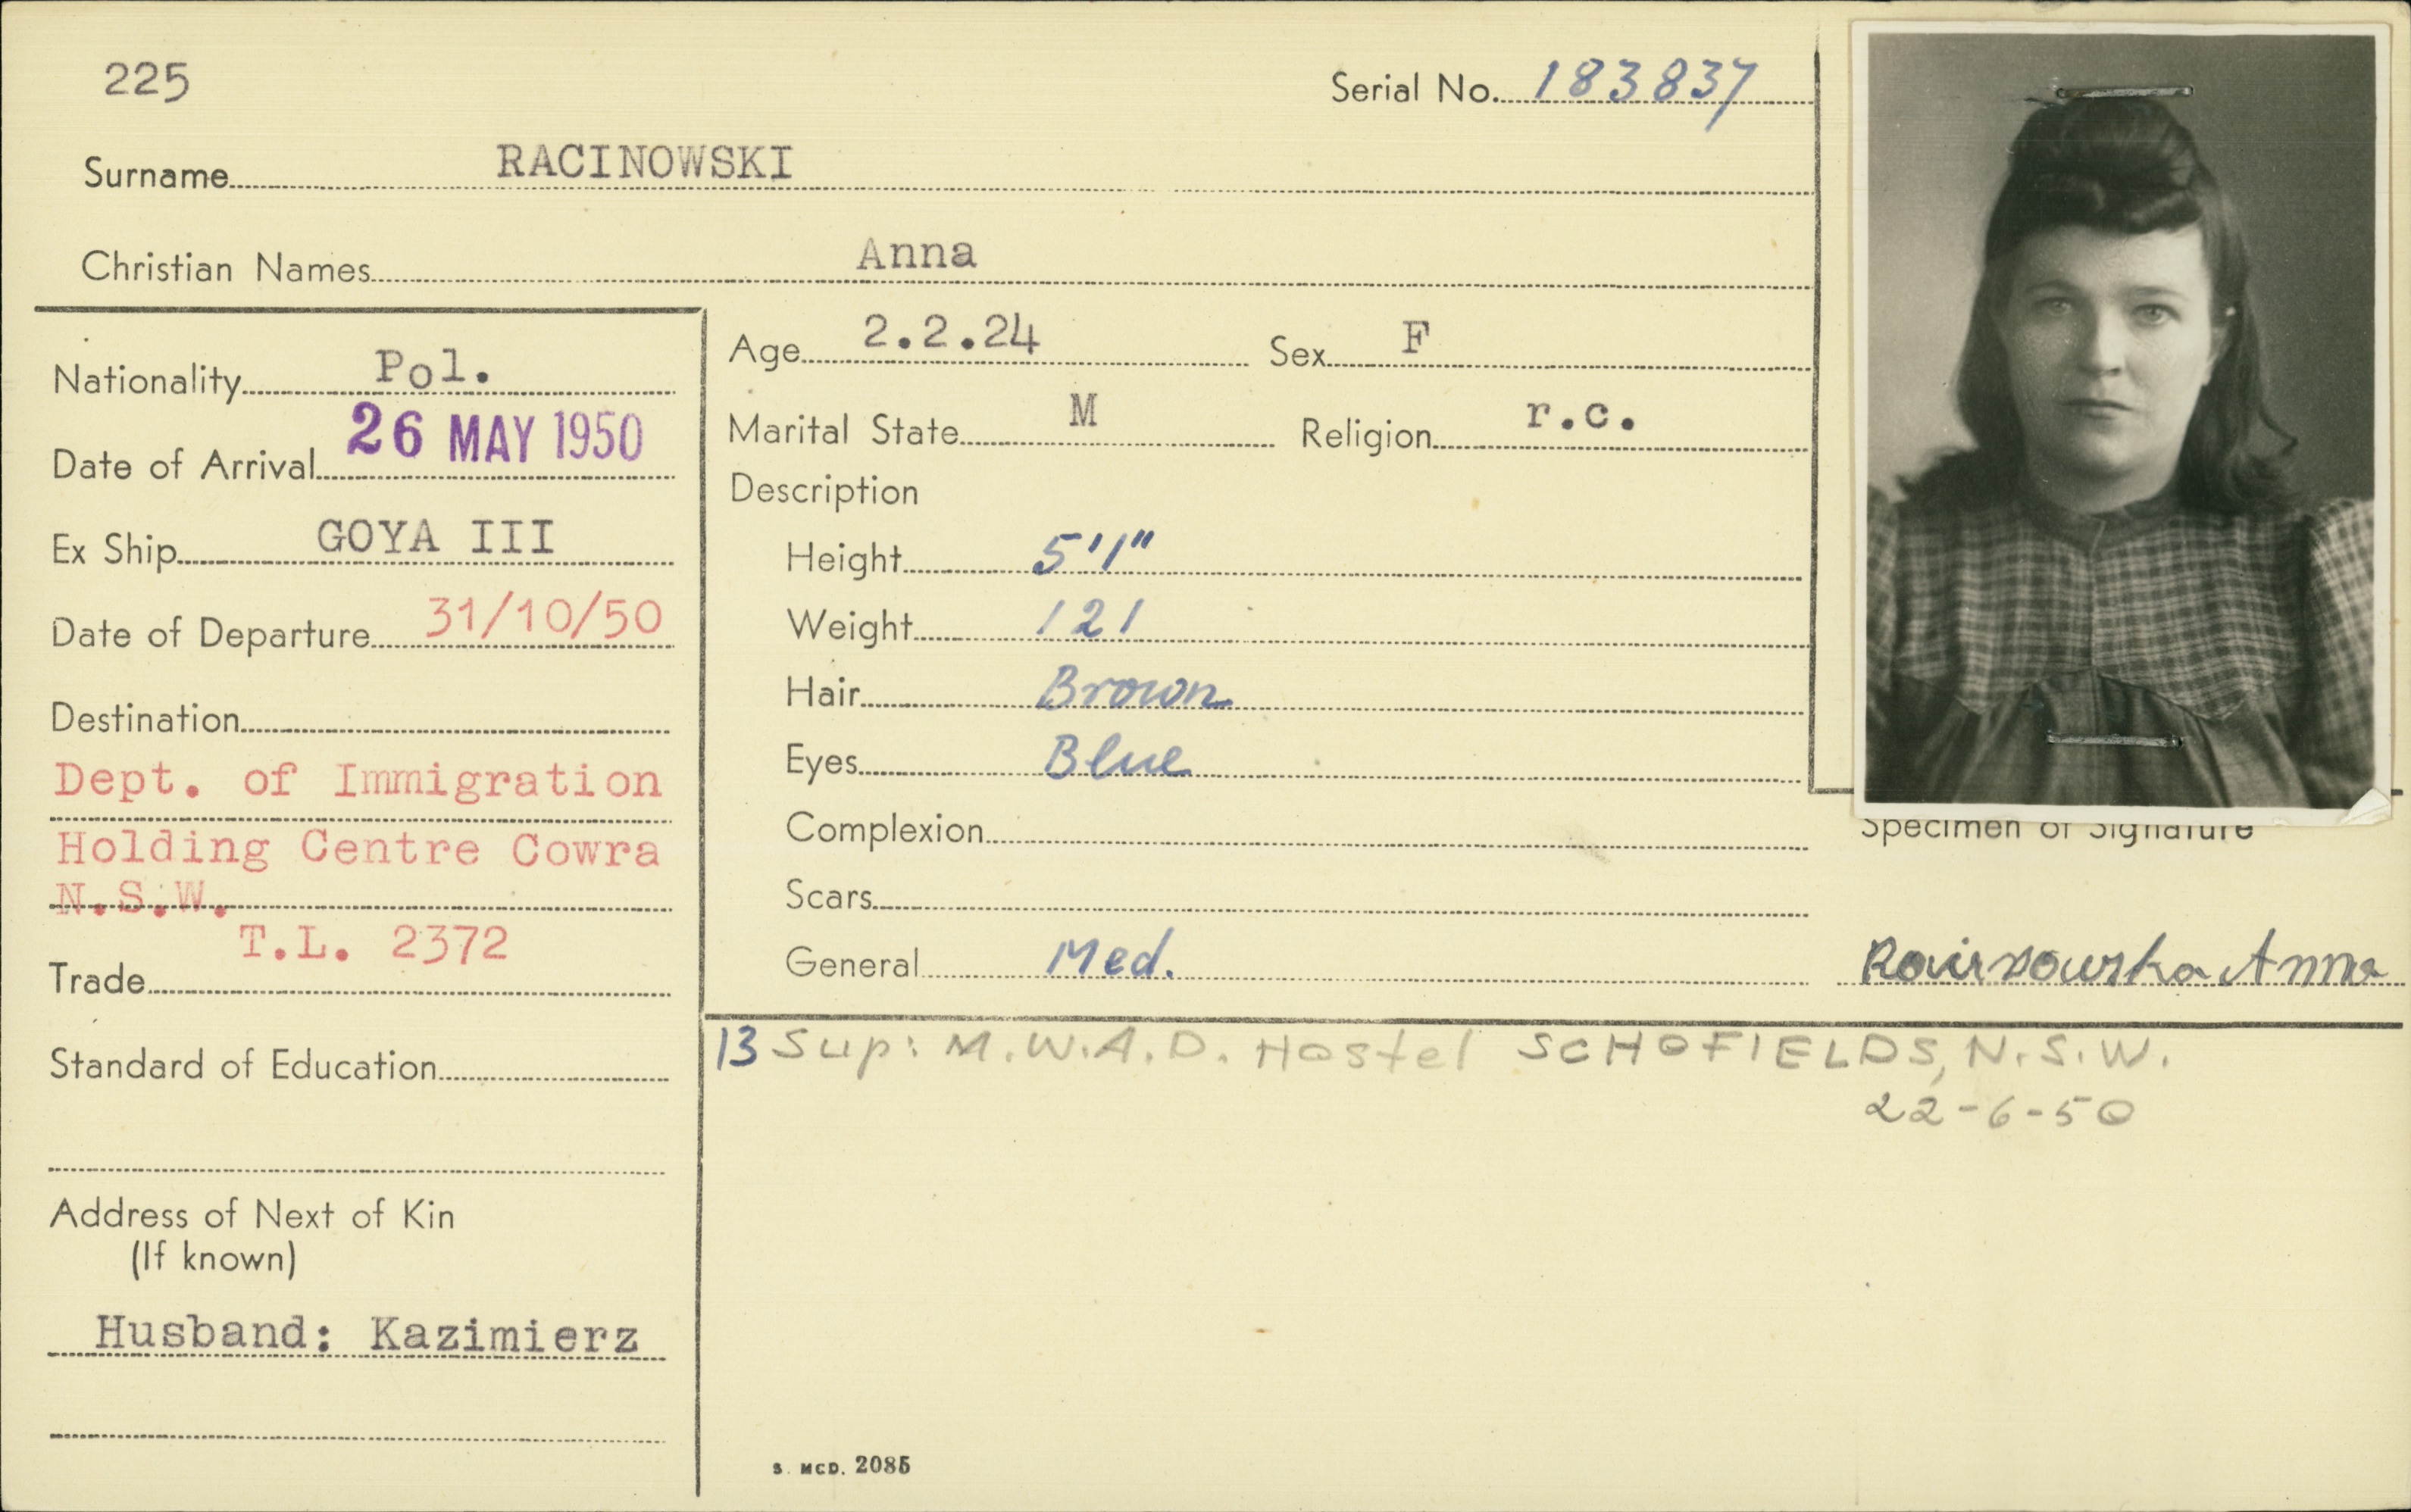 225
Serial No. 183837
Surname RACINOWSKI
Christian Names Anna
Nationality Pol.
Date of Arrival 26 MAY 1950
Ex Ship GOYA III
Date of Departure 31/10/50
Destination
Dept. of Immigration
Holding Centre Cowra
N.S.W.
T.L. 2372
Trade
Standard of Education
Address of Next of Kin
(If known)
Husband: Kazimierz
Age 2.2.24 Sex F
Marital State M Religion r.c.
Description
Height 5'1"
Weight 121
Hair Brown
Eyes Blue
Complexion
Scars
General Med.
Specimen of Signature
Anna
13 Sup: M.W.A.D. Hostel SCHOFIELDS, N.S.W.
22-6-50
S. MCD. 2085